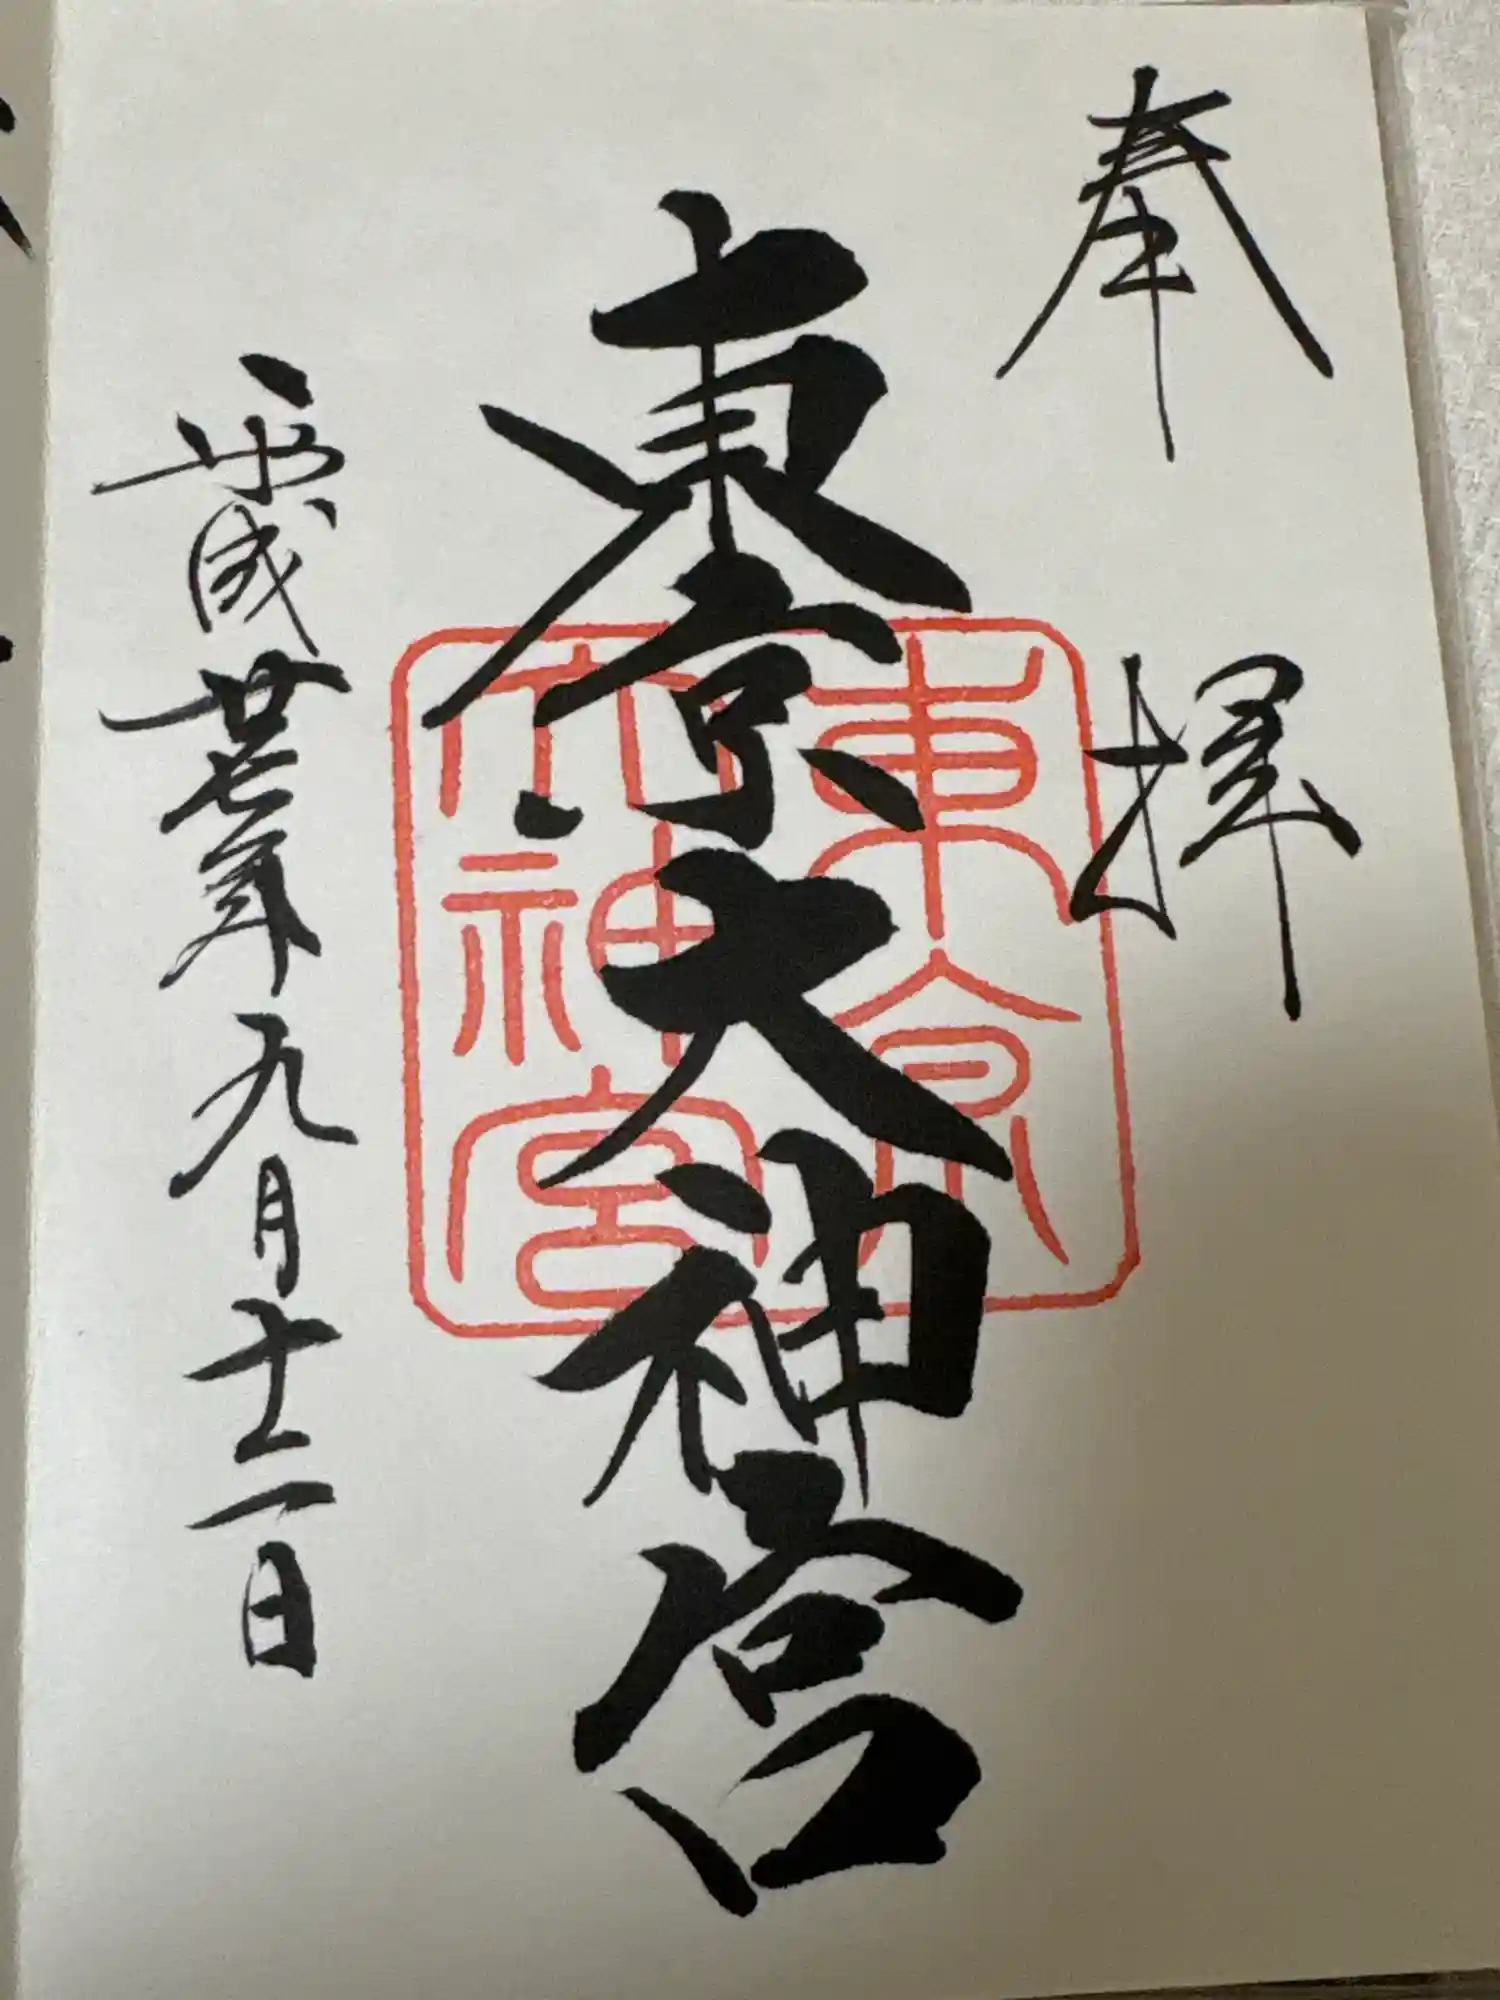 奉拝
東京大神宮
東京
大神宮
平成廿七年九月十二日